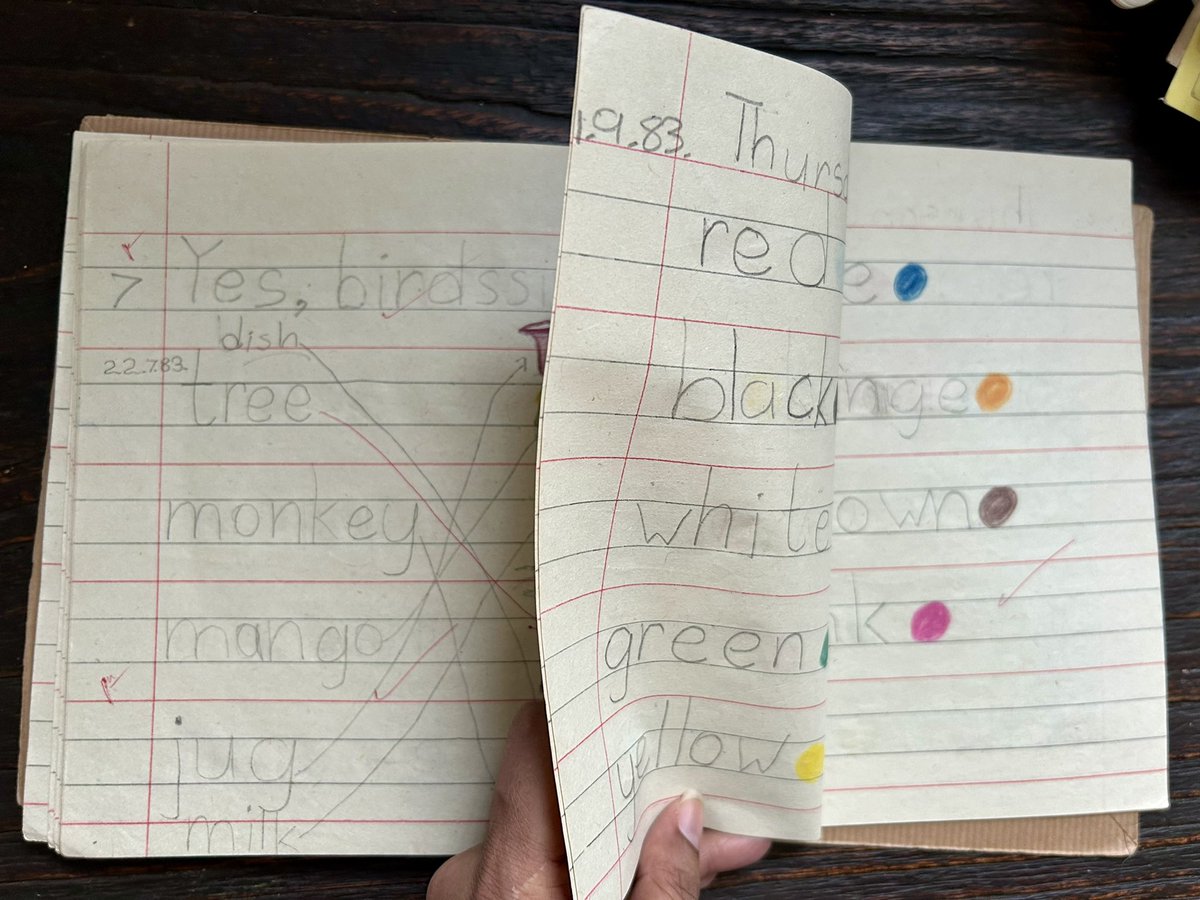 7 Yes, birdssi
dish
22.7.83.
tree
monkey
mango
jug
milk
1.9.83. Thurs
red
black
white
green
yellow
e
nge
own
k